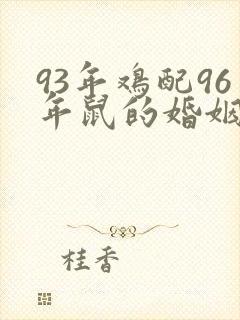 93年鸡配96
年鼠的婚姻
桂香